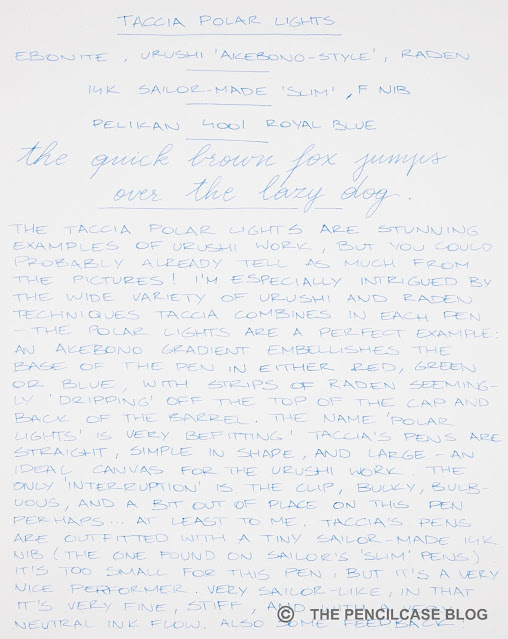 TACCIA POLAR LIGHTS
EBONITE, URUSHI 'AKEBONO-STYLE', RADEN
14K SAILOR-MADE 'SLIM', F NIB
PELIKAN 4001 ROYAL BLUE
the quick brown fox jumps
over the lazy dog.
THE TACCIA POLAR LIGHTS ARE STUNNING
EXAMPLES OF URUSHI WORK, BUT YOU COULD
PROBABLY ALREADY TELL AS MUCH FROM
THE PICTURES! I'M ESPECIALLY INTRIGUED BY
THE WIDE VARIETY OF URUSHI AND RADEN
TECHNIQUES TACCIA COMBINES IN EACH PEN
- THE POLAR LIGHTS ARE A PERFECT EXAMPLE:
AN AKEBONO GRADIENT EMBELLISHES THE
BASE OF THE PEN IN EITHER RED, GREEN
OR BLUE, WITH STRIPS OF RADEN SEEMING-
LY 'DRIPPING' OFF THE TOP OF THE CAP AND
BACK OF THE BARREL. THE NAME 'POLAR
LIGHTS' IS VERY BEFITTING! TACCIA'S PENS ARE
STRAIGHT, SIMPLE IN SHAPE, AND LARGE - AN
IDEAL CANVAS FOR THE URUSHI WORK. THE
ONLY 'INTERRUPTION' IS THE CLIP, BULKY, BULB-
UOUS, AND A BIT OUT OF PLACE ON THIS PEN
PERHAPS... AT LEAST TO ME. TACCIA'S PENS
ARE OUTFITTED WITH A TINY SAILOR-MADE 14K
NIB (THE ONE FOUND ON SAILOR'S 'SLIM' PENS)
IT'S TOO SMALL FOR THIS PEN, BUT IT'S A VERY
NICE PERFORMER. VERY SAILOR-LIKE, IN THAT
IT'S VERY FINE, STIFF, AND WITH A VERY
NEUTRAL INK FLOW. ALSO SOME FEEDBACK.
© THE PENCILCASE BLOG